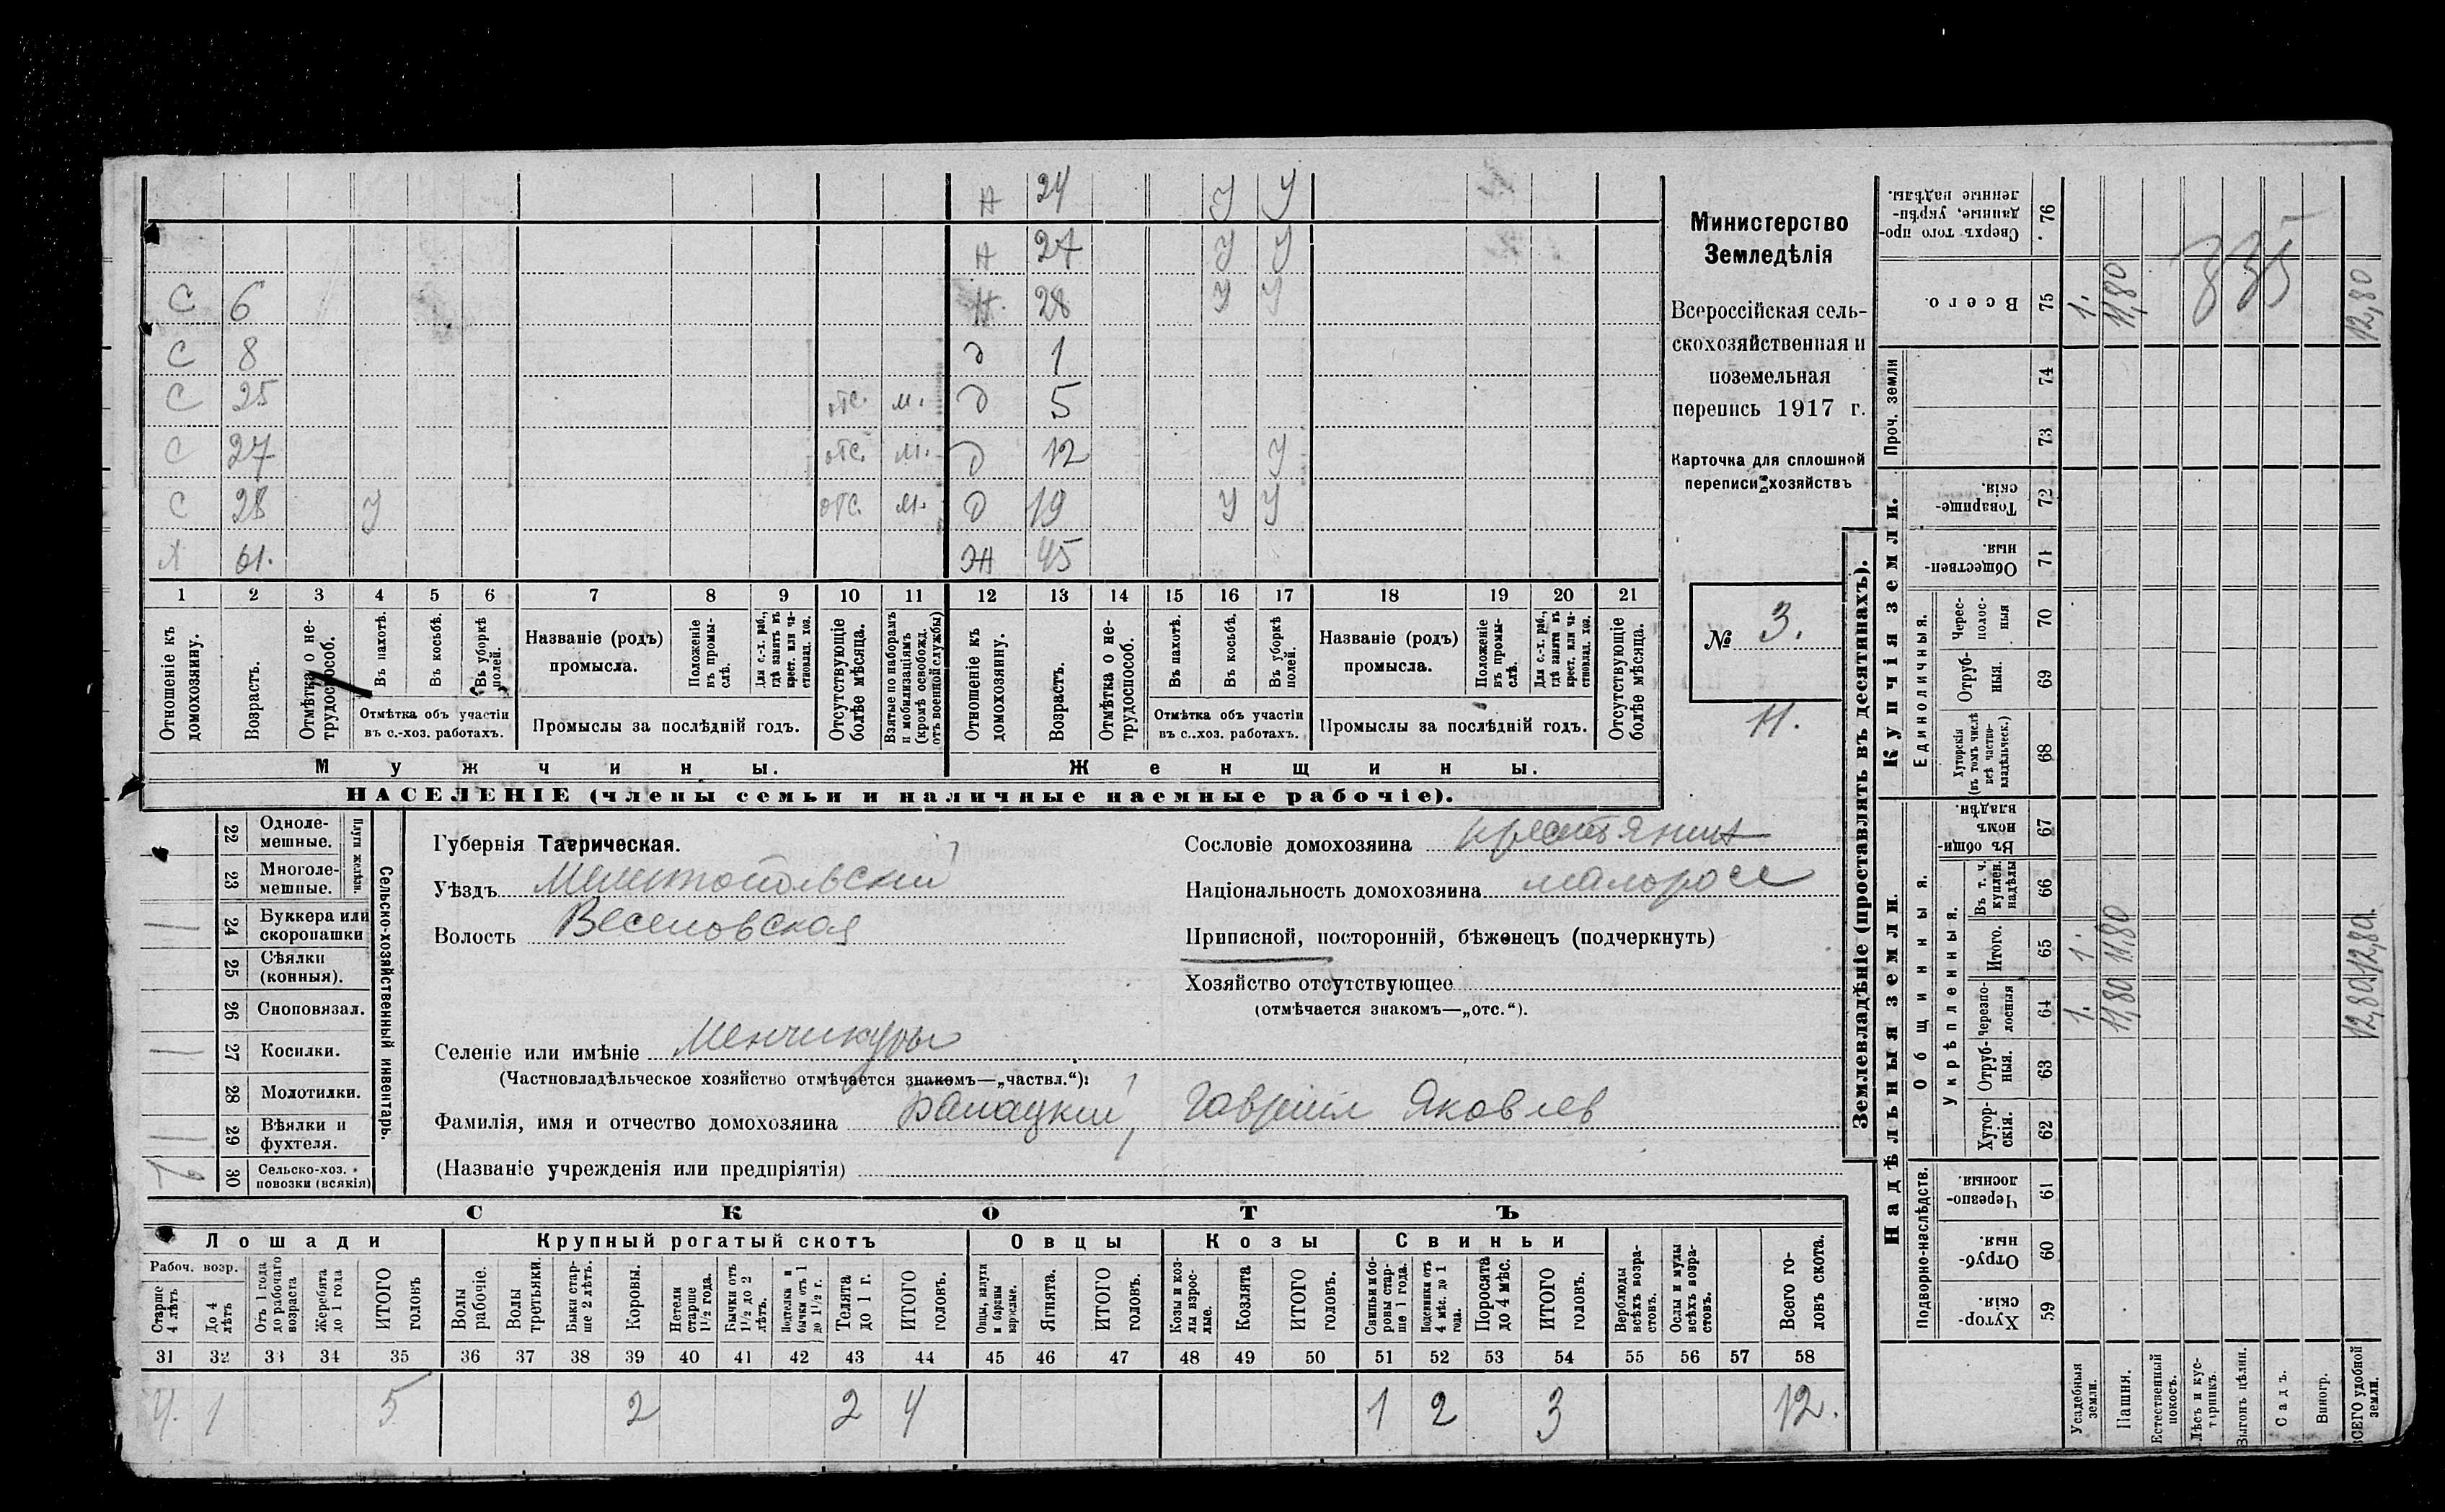 Н 24 У У
Н 27 У У
С 6 Н. 28 У У
С 8 д 1
С 25 отс. м. д 5
С 27 отс. м. д 12 У
С 28 У отс. м. д 19 У У
61. Ж 45
1 2 3 4 5 6 7 8 9 10 11 12 13 14 15 16 17 18 19 20 21
Отношеніе къ домохозяину.
Возрастъ.
Отмѣтка о не-трудоспособ.
Въ пахотѣ.
Въ косьбѣ.
Въ уборкѣ полей.
Отмѣтка объ участіи
въ с.-хоз. работахъ.
Названіе (родъ)
промысла.
Положеніе въ промы-слѣ.
Для с.-х. раб., гдѣ занятъ въ крест. или ча-стновлад. хоз.
Промыслы за послѣдній годъ.
Отсутствующіе болѣе мѣсяца.
Взятые по наборамъ и мобилизаціямъ (кромѣ освобожд. отъ военной службы)
Отношеніе къ домохозяину.
Возрастъ.
Отмѣтка о не-трудоспособ.
Въ пахотѣ.
Въ косьбѣ.
Въ уборкѣ полей.
Отмѣтка объ участіи
въ с..хоз. работахъ.
Названіе (родъ)
промысла.
Положеніе въ промы-слѣ.
Для с.-х. раб., гдѣ занята въ крест. или ча-стновлад. хоз.
Промыслы за послѣдній годъ.
Отсутствующіе болѣе мѣсяца.
Мужчины.
Женщины.
НАСЕЛЕНІЕ (члены семьи и наличные наемные рабочіе).
Министерство
Земледѣлія
Всероссійская сель-
скохозяйственная и
поземельная
перепись 1917 г.
Карточка для сплошной
переписи хозяйствъ
№ 3.
11.
Сельско-хозяйственный инвентарь.
Плуги желѣзн.
22 Одноле-мешные.
23 Многоле-мешные.
1 24 Буккера или скоропашки
25 Сѣялки (конныя).
26 Сноповязал.
1 27 Косилки.
28 Молотилки.
1 29 Вѣялки и фухтеля.
30 Сельско-хоз. повозки (всякія)
Губернія Таврическая.
Уѣздъ Мелитопольскій
Волость Веселовская
Селеніе или имѣніе Менчикуры
(Частновладѣльческое хозяйство отмѣчается знакомъ—„частвл.“):
Фамилія, имя и отчество домохозяина Гавріил Яковлев
(Названіе учрежденія или предпріятія)
Сословіе домохозяина крестьянин
Національность домохозяина малоросс
Приписной, посторонній, бѣженецъ (подчеркнуть)
Хозяйство отсутствующее
(отмѣчается знакомъ—„отс.“).
СКОТЪ
Лошади
Крупный рогатый скотъ
Овцы
Козы
Свиньи
Рабоч. возр.
Старше 4 лѣтъ
До 4 лѣтъ
Отъ 1 года до рабочаго возраста
Жеребята до 1 года
ИТОГО головъ
Волы рабочіе.
Волы третьяки.
Быки стар-ше 2 лѣтъ.
Коровы.
Нетели старше 1½ года.
Бычки отъ 1½ до 2 лѣтъ.
Подтелки и бычки отъ 1 до 1½ г.
Телята до 1 г.
ИТОГО головъ.
Овцы, валухи и бараны взрослые.
Ягнята.
ИТОГО головъ.
Козы и коз-лы взрос-лые.
Козлята
ИТОГО головъ.
Свиньи и бо-ровы стар-ше 1 года.
Подсвинки отъ 4 мѣс. до 1 года.
Поросята до 4 мѣс.
ИТОГО головъ.
Верблюды всѣхъ возра-стовъ.
Ослы и мулы всѣхъ возра-стовъ.
Всего го-ловъ скота.
31 32 33 34 35 36 37 38 39 40 41 42 43 44 45 46 47 48 49 50 51 52 53 54 55 56 57 58
4. 1 5 2 2 4 1 2 3 12.
Землевладѣніе (проставлять въ десятинахъ).
Надѣльныя земли.
Купчія земли.
Проч. земли
Подворно-наслѣдств.
Общинныя.
Укрѣпленныя.
Единоличныя.
Сверхъ того про-данные, укрѣп-ленные надѣлы. 76
Всего. 75 1. 11,80 12,80
335
74
73
Товарище-скія. 72
Обществен-ныя. 71
Черес-полос-ныя 70
Отруб-ныя. 69
Хуторскія (въ томъ числѣ всѣ частно-владѣльческ.) 68
Въ общи-номъ владѣн. 67
Въ т. ч. куплен. надѣлы 66
Итого. 65 1. 11.80 12,80.
Черезпо-лосныя 64 1. 11,80 12,80
Отруб-ныя. 63
Хутор-скія. 62
Черезпо-лосныя. 61
Отруб-ныя. 60
Хутор-скія. 59
Усадебныя земли.
Пашня.
Естественный покосъ.
Лѣсъ и кус-тарникъ.
Выгонъ цѣлин.
Садъ.
Виногр.
ВСЕГО удобной земли.